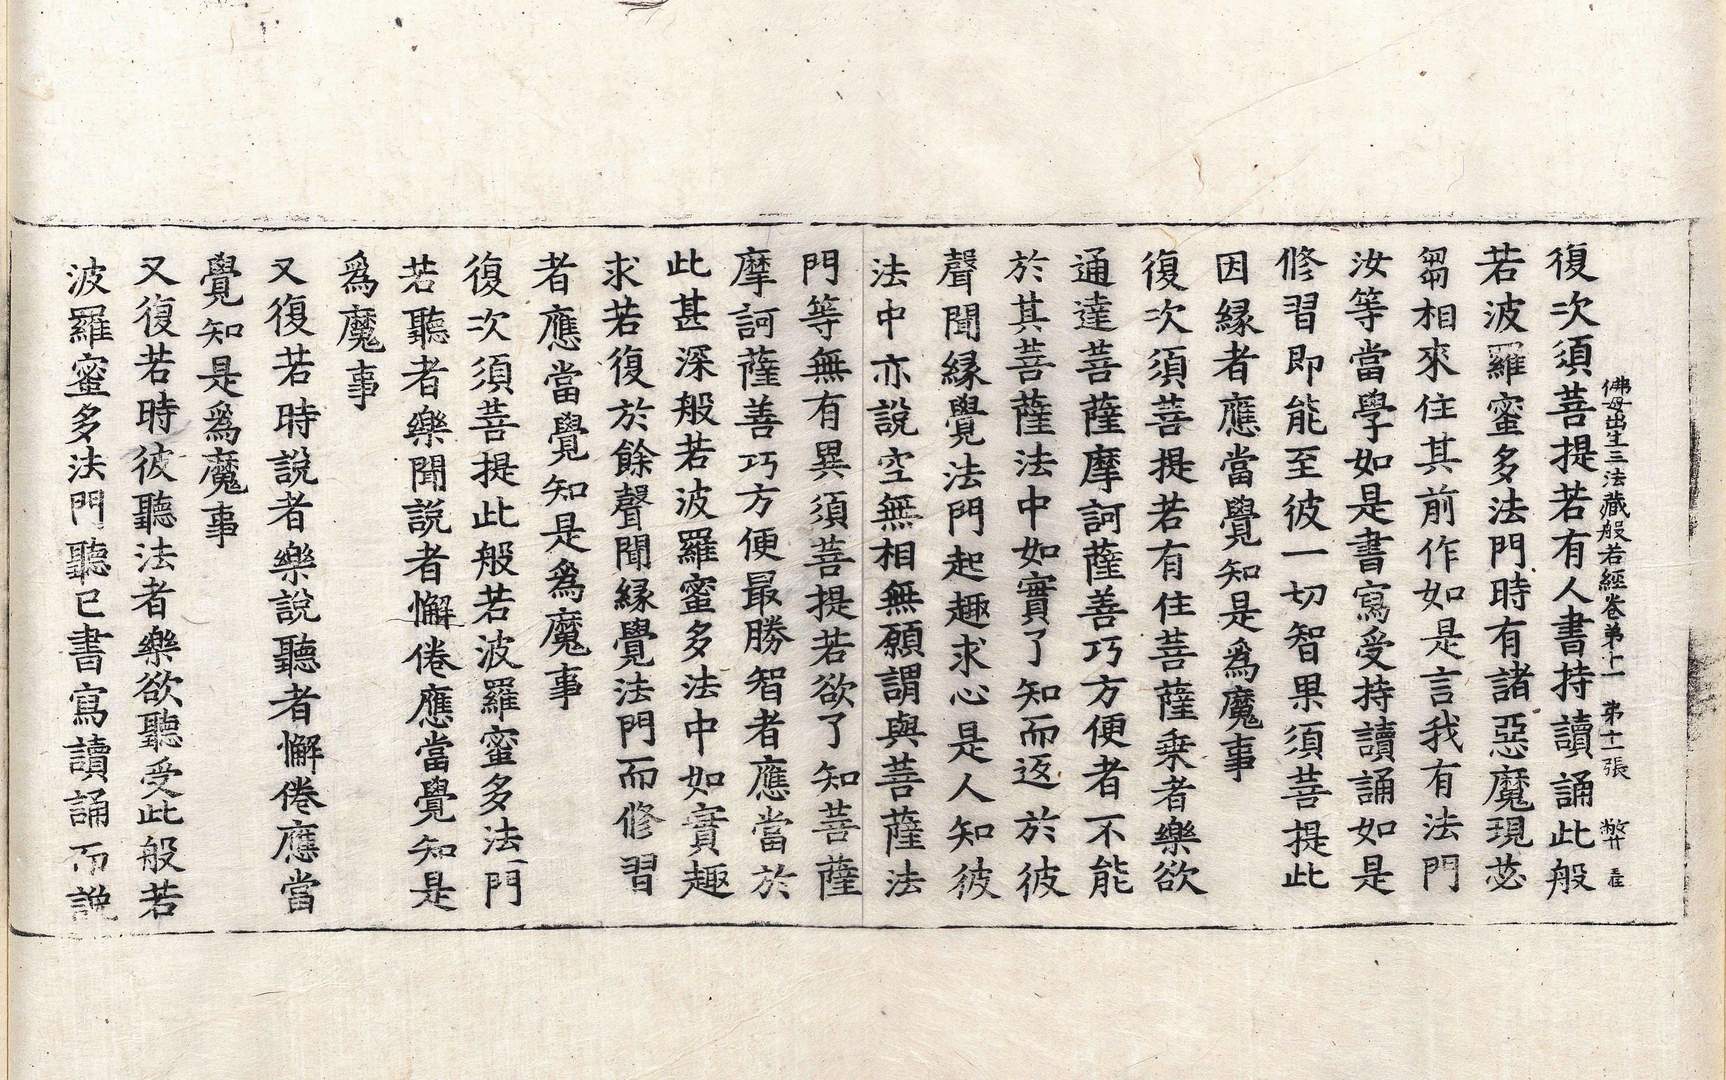 佛母出生三法藏般若經卷苐十一 苐十一張
復次須菩提若有人書持讀誦此般
若波羅蜜多法門時有諸惡魔現苾
芻相來住其前作如是言我有法門
汝等當學如是書寫受持讀誦如是
修習即能至彼一切智果須菩提此
因縁者應當覺知是爲魔事
復次須菩提若有住菩薩乗者樂欲
通達菩薩摩訶薩善巧方便者不能
於其菩薩法中如實了知而返於彼
聲聞縁覺法門起趣求心是人知彼
法中亦說空無相無願謂與菩薩法
門等無有異須菩提若欲了知菩薩
摩訶薩善巧方便最勝智者應當於
此甚深般若波羅蜜多法中如實趣
求若復於餘聲聞縁覺法門而修習
者應當覺知是爲魔事
復次須菩提此般若波羅蜜多法門
若聽者樂聞說者懈倦應當覺知是
爲魔事
又復若時說者樂說聽者懈倦應當
覺知是爲魔事
又復若時彼聽法者樂欲聽受此般若
波羅蜜多法門聽已書寫讀誦而說